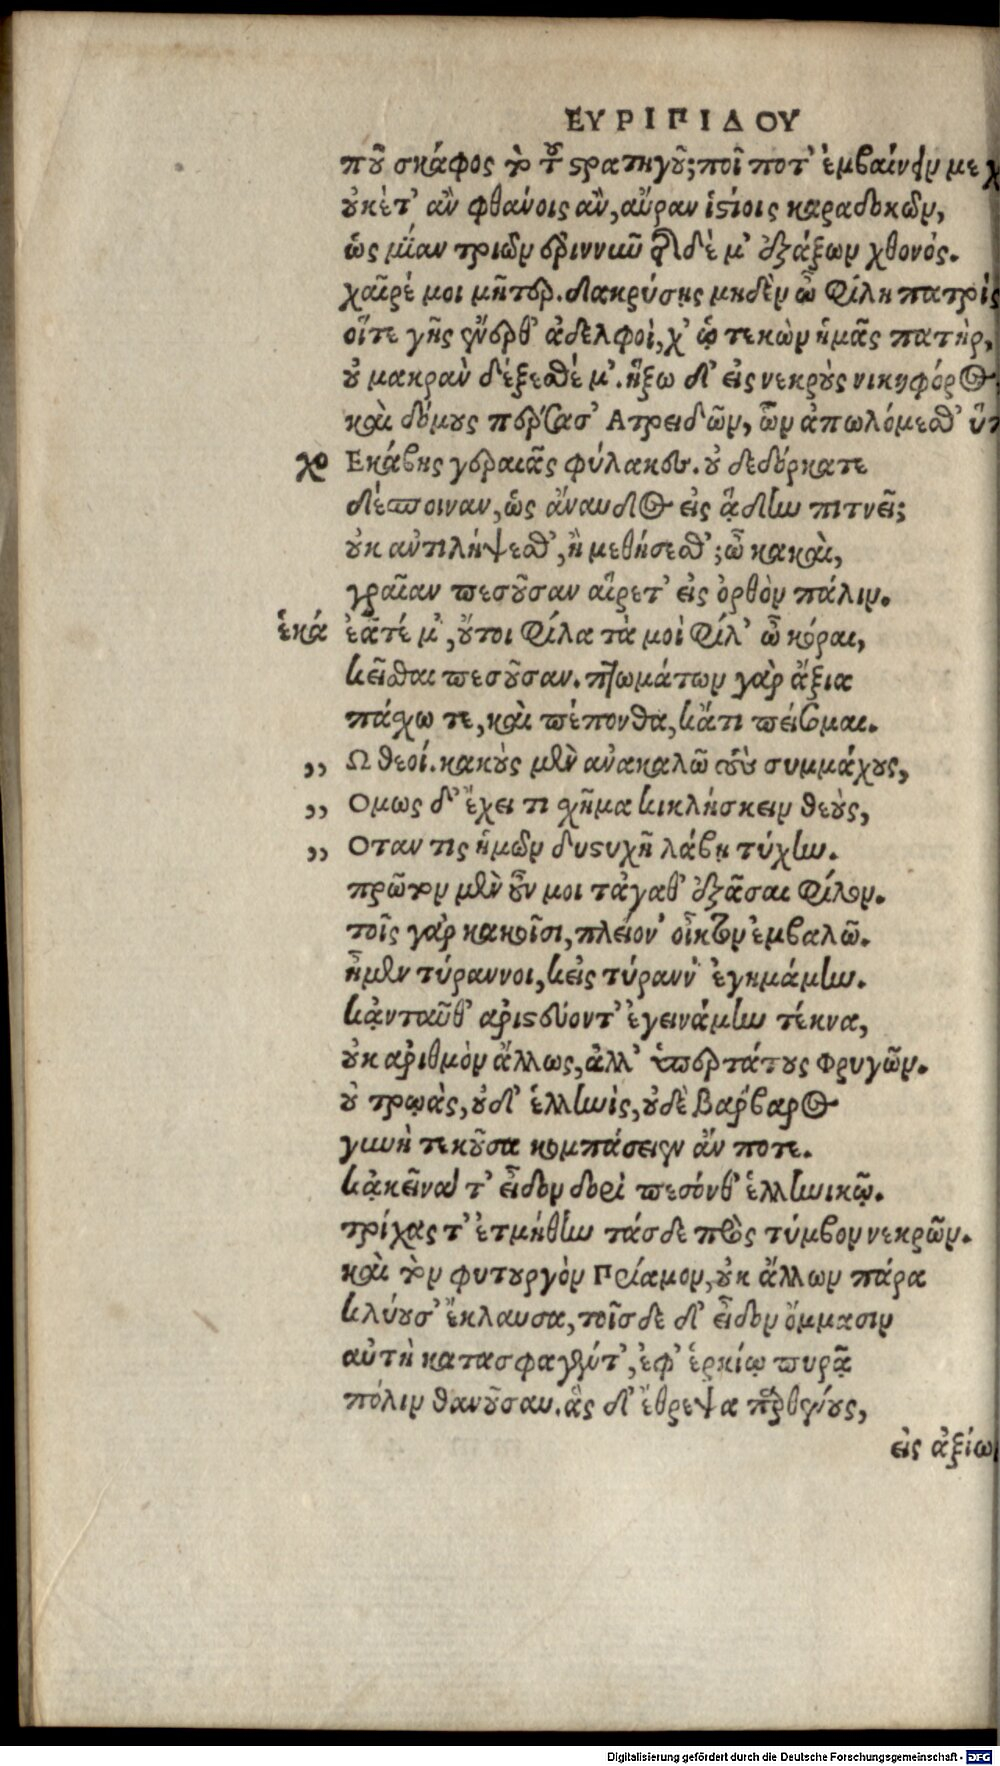 ΕΥΡΙΠΙΔΟΥ
ποῦ σκάφος τὸ τοῦ στρατηγοῦ; ποῖ ποτ' ἐμβαίνειν με
οὐκέτ' ἂν φθάνοις ἂν, αὔραν ἱστίοις καραδοκῶν,
ὡς μίαν τριῶν ἐριννῦν τήνδέ μ' ἐξάξων χθονός.
χαῖρέ μοι μῆτερ. δακρύσῃς μηδὲν ὦ φίλη πατρίς
οἵτε γῆς ἔνερθ' ἀδελφοὶ, χ' ᾧ τεκὼν ἡμᾶς πατὴρ,
οὐ μακρὰν δέξεσθέ μ'. ἥξω δ' εἰς νεκροὺς νικηφόρος
καὶ δόμους πέρσασ' Ατρειδῶν, ὧν ἀπωλόμεσθ'
χο Εκάβης γεραιᾶς φύλακες. οὐ δεδόρκατε
δέσποιναν, ὡς ἄναυδος εἰς ᾅδην πιτνεῖ;
οὐκ ἀντιλήψεσθ', ἢ μεθήσεσθ'; ὦ κακαὶ,
γραῖαν πεσοῦσαν αἴρετ' εἰς ὀρθὸν πάλιν.
ἑκά ἐᾶτέ μ', οὔτοι φίλα τὰ μοὶ φίλ' ὦ κόραι,
κεῖσθαι πεσοῦσαν. πτωμάτων γὰρ ἄξια
πάσχω τε, καὶ πέπονθα, κἄτι πείσομαι.
,, Ω θεοί. κακοὺς μὲν ἀνακαλῶ τοὺς συμμάχους,
,, Ομως δ' ἔχει τι σχῆμα κικλήσκειν θεοὺς,
,, Οταν τις ἡμῶν δυστυχῆ λάβῃ τύχην.
πρῶτον μὲν οὖν μοι τἀγαθ' ἐξᾶσαι φίλον.
τοῖς γὰρ κακοῖσι, πλείον' οἶκτον ἐμβαλῶ.
ἦ μὲν τύραννοι, κεις τύρανν' ἐγημάμην.
κᾀνταῦθ' ἀριστεύοντ' ἐγεινάμην τέκνα,
οὐκ ἀριθμὸν ἄλλως, ἀλλ' ὑπερτάτους Φρυγῶν.
οὐ τρῳὰς, οὐδ' ἑλληνὶς, οὐδὲ Βάρβαρος
γυνὴ τεκοῦσα κομπάσειεν ἄν ποτε.
κᾀκεῖνά τ' εἶδον δορὶ πεσόνθ' ἑλληνικῷ.
τρίχας τ' ἐτμήθην τάσδε πρὸς τύμβον νεκρῶν.
καὶ τὸν φυτουργὸν Πρίαμον, οὐκ ἄλλων πάρα
κλύουσ' ἔκλαυσα, τοῖσδε δ' εἶδον ὄμμασιν
αὐτὴ κατασφαγέντ', ἐφ' ἑρκίῳ πυρᾷ
πόλιν θανοῦσαν. ἃς δ' ἔθρεψα παρθένους,
εἰς ἀξίω